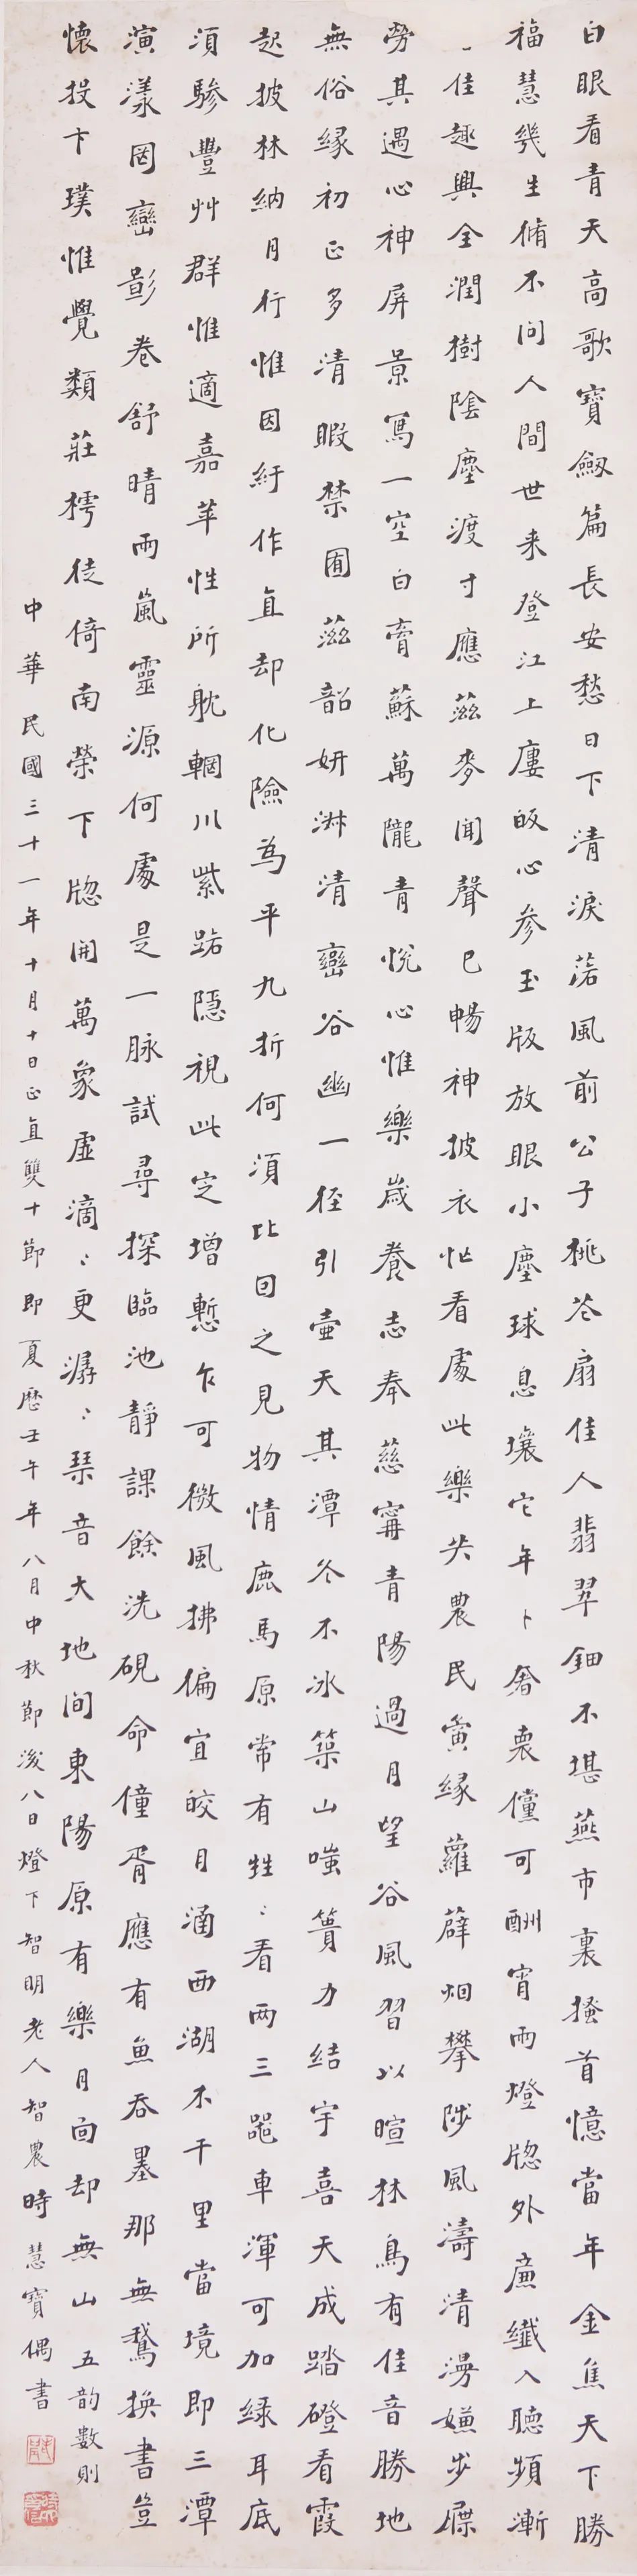 白眼看青天高歌寶劔篇長安愁日下清淚落風前公子桃花扇佳人翡翠鈿不堪燕市裏搔首憶當年金焦天下勝
福慧幾生脩不问人間世来登江上廔皈心参玉版放眼小塵球息壤它年卜奢衷儻可酬宵雨燈牕外廉纖入聽頻漸
佳趣興全潤樹陰塵渡寸應茲麥聞聲已暢神披衣怡看處此樂共農民夤緣蘿薜烟攀陟風濤清漫嫌步屧
勞其遇心神屏景寫一空白膏蘇萬隴青悅心惟樂歲養志奉慈甯青陽過月望谷風習以暄林鳥有佳音勝地
無俗緣初正多清暇禁囿茲韶妍淋清巒谷幽一径引壷天其潭冬不冰築山嗤簣力結宇喜天成踏磴看霞
起披林納月行惟因紆作直却化險為平九折何湏比回之見物情鹿馬原常有甡〻看两三罷車渾可加緑耳底
湏驂豐艸群惟適嘉苹性所躭輞川紫跖隱視此定增慙乍可微風拂偏宜皎月涵西湖不千里當境即三潭
演漾图巒影卷舒晴雨嵐靈源何處是一脉試尋探臨池靜課餘洗硯命僮胥應有魚吞墨那無鵞换書豈
懐投卞璞惟覺類莊樗徒倚南榮下牕開萬象虛滴〻更潺〻琹音大地间東陽原有樂月面却無山五韵數则
中華民國三十一年十月十日正直雙十節即夏歷壬午年八月中秋節後八日燈下智明老人智農時慧寶偶書